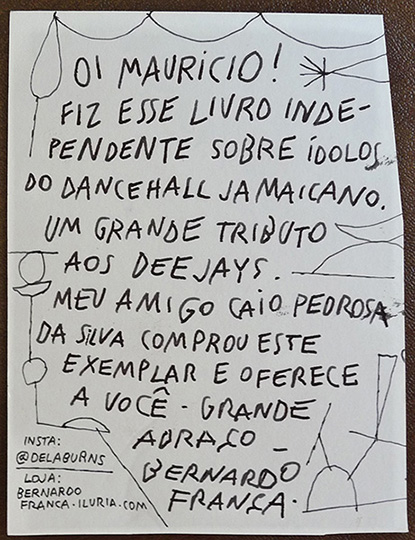 OI MAURÍCIO!
FIZ ESSE LIVRO INDE-
PENDENTE SOBRE ÍDOLOS
DO DANCEHALL JAMAICANO.
UM GRANDE TRIBUTO
AOS DEEJAYS.
MEU AMIGO CAIO PEDROSA
DA SILVA COMPROU ESTE
EXEMPLAR E OFERECE
A VOCÊ - GRANDE
ABRAÇO -
BERNARDO
FRANÇA.
INSTA:
@DELABURNS
LOJA:
BERNARDO
FRANCA.ILURIA.COM